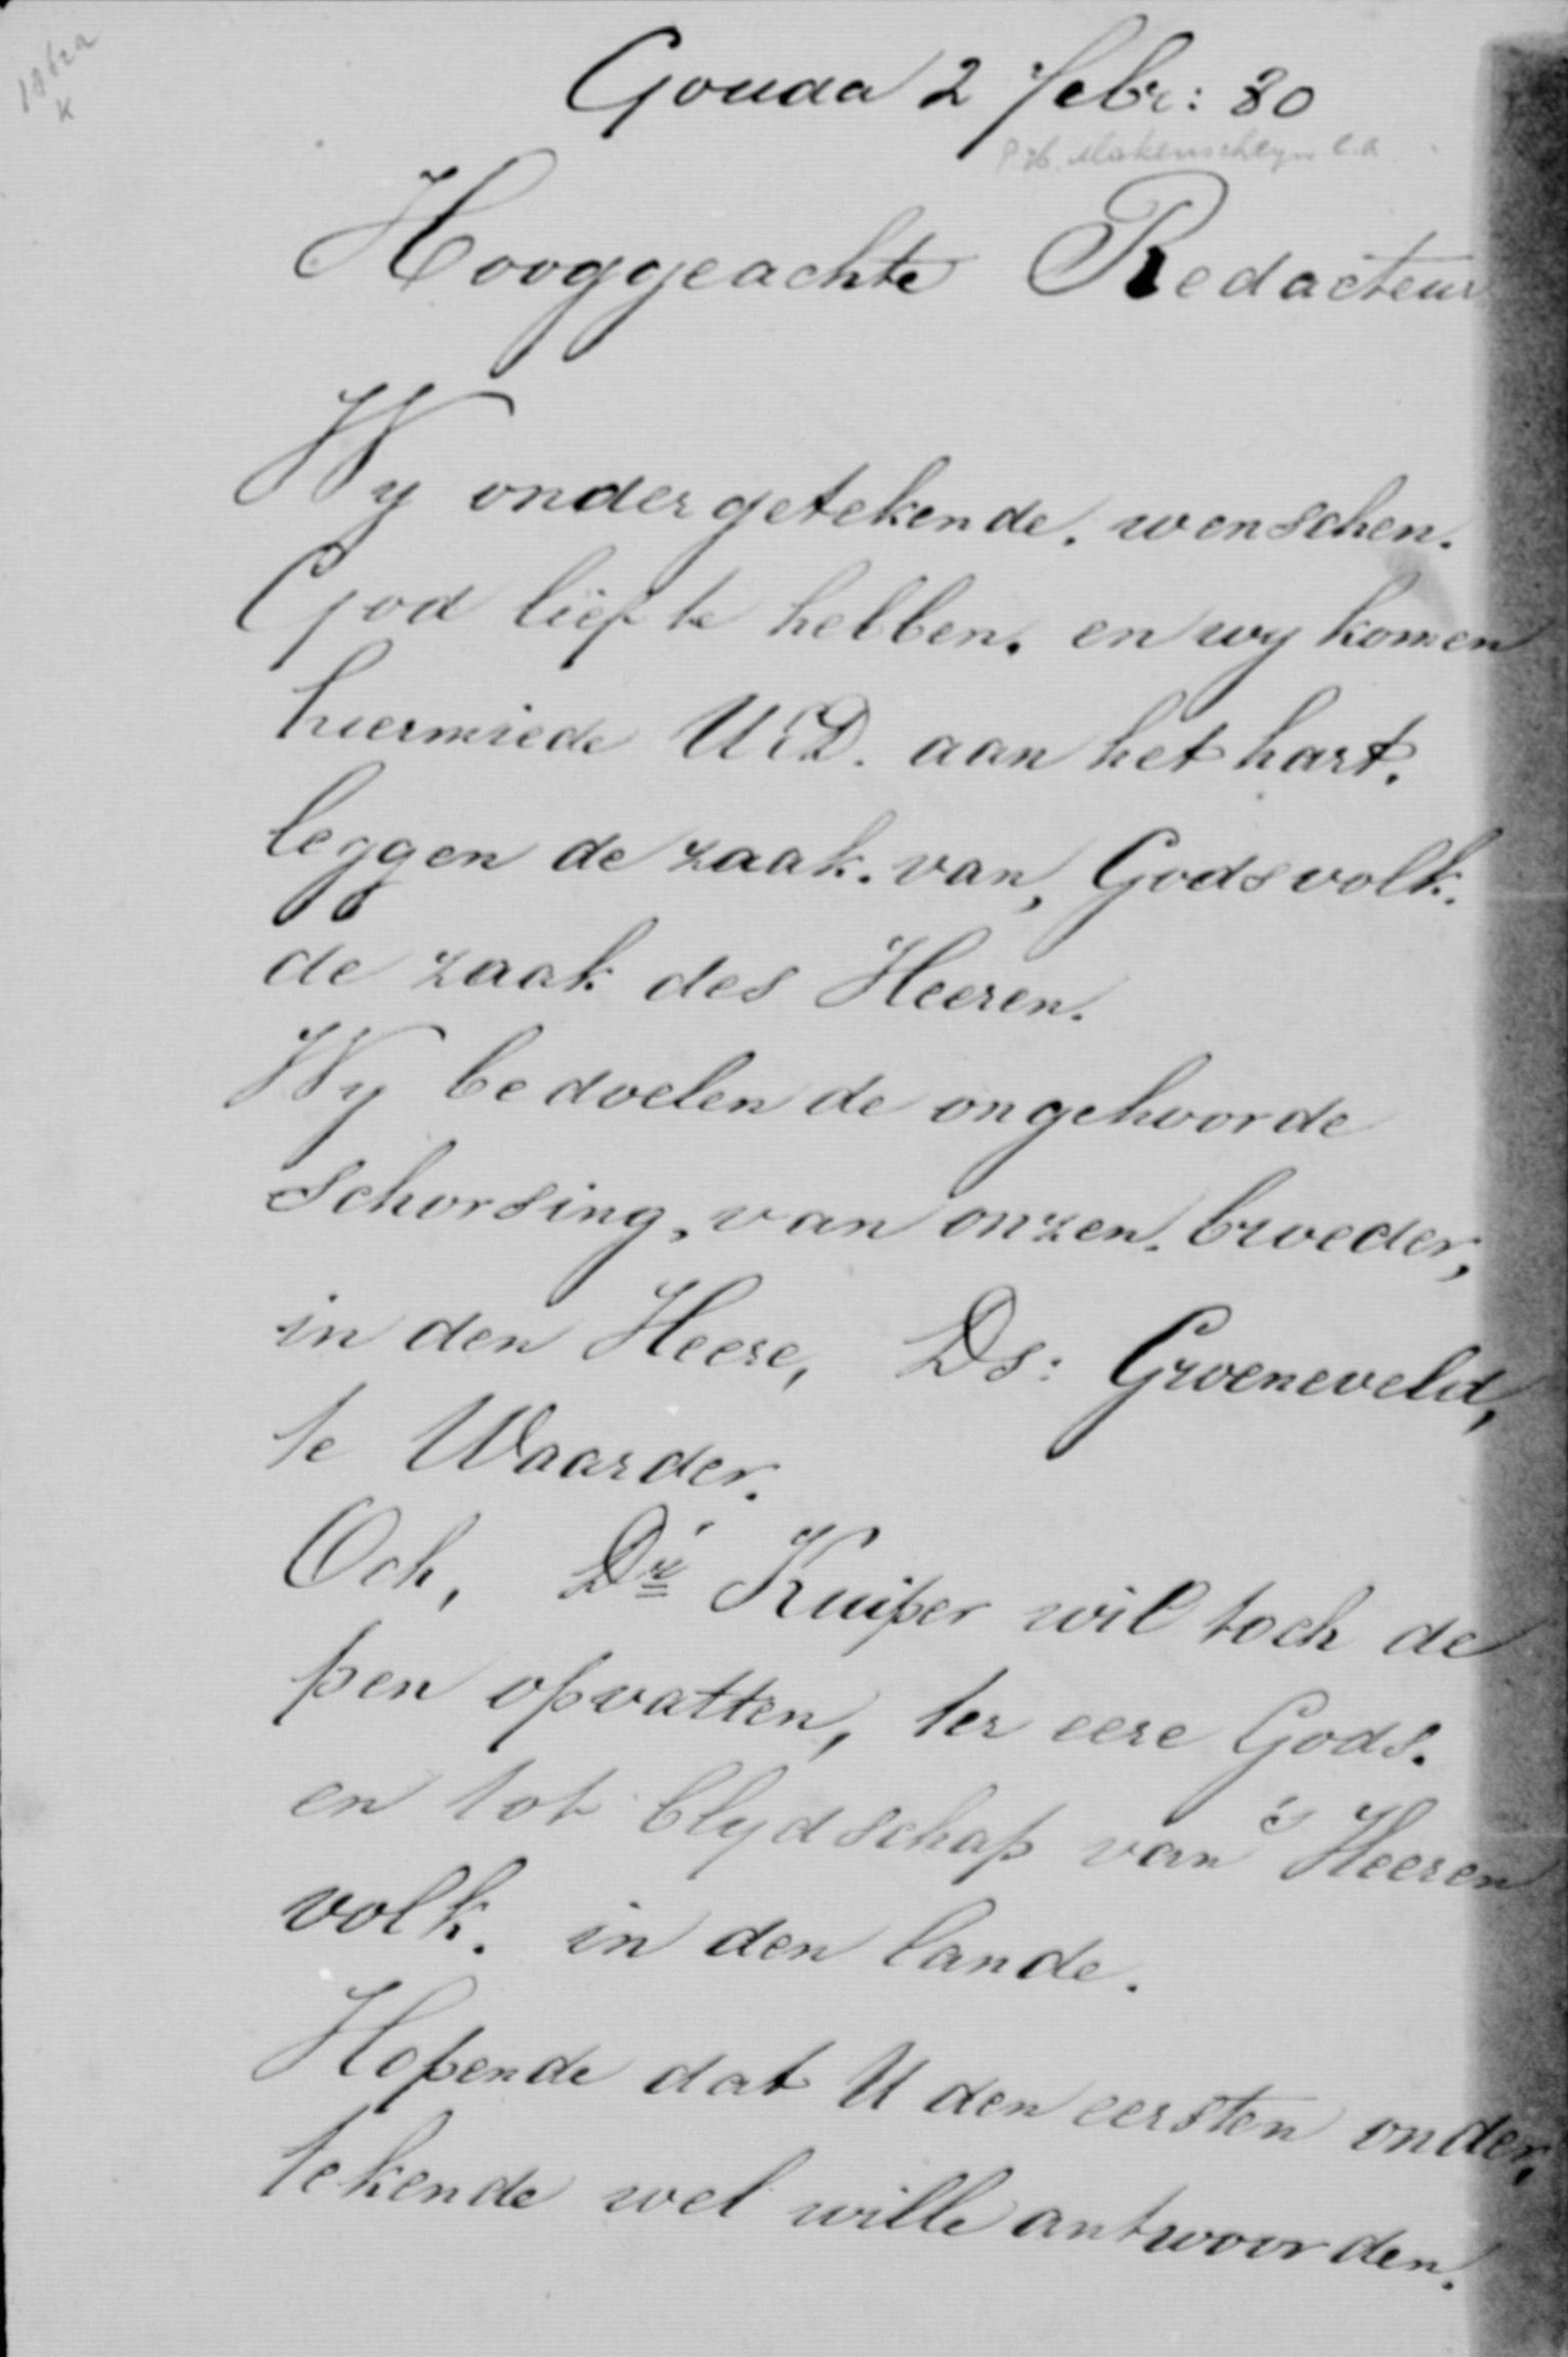 1862a
K
Gouda 2 febr: 80
Hooggeachte Redacteur
Wy ondergetekende. wenschen.
God lief te hebben. en wy komen
hiermede UED. aan het hart.
leggen de zaak. van, Gods volk.
de zaak des Heeren.
Wy bedoelen de ongehoorde
schorsing, van onzen. broeder,
in den Heere, Ds: Groeneveld,
te Waarder.
Och, Dr Kuiper wil toch de
pen opvatten, ter eere Gods.
en tot blydschap van 's Heeren
volk. in den lande.
Hopende dat U den eersten onder,
tekende wel wille antwoorden.